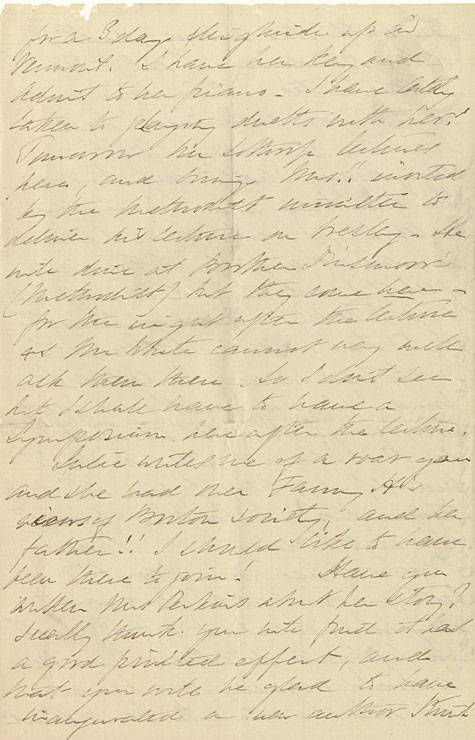 for a 3 day sleighride up in
Vermont. I have her key and
admit to her piano - I have lately
taken to playing duetts with her!
Tomorrow Mr Lothrop lectures
here, and brings Mrs!! invited
by the Methodist minister to
deliver his lecture on Wesley. He
will dine at Brother Dinsmoor's
(Methodist) but they come here -
for the night after the lecture
as Mr White cannot very well
ask them there. So I don't see
but I shall have to have a
Symposium here after the lecture.
Julie writes me of a roar you
and she had over Fanny H's
views of Boston Society, and her
father!! I should like to have
been there to join! Have you
written Mrs Perkins about her story?
I really think you will find it has
a good printed effect, and
that you will be glad to have
inaugurated a new author I think